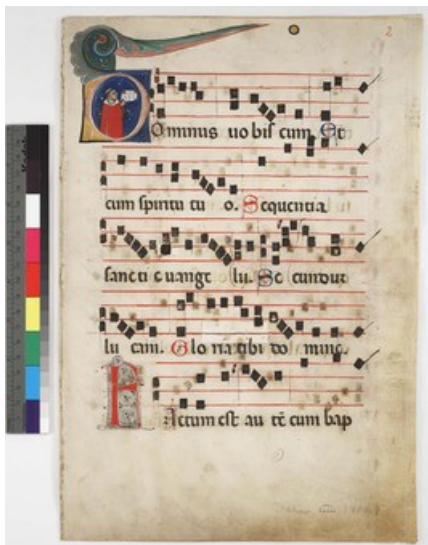 2
Dominus uobis cum. Et
cum spiritu tu o. Sequentia
sancti euange lii. Se cundum
lu cam. Glo ria tibi do mine.
Factum est au tē cum bap